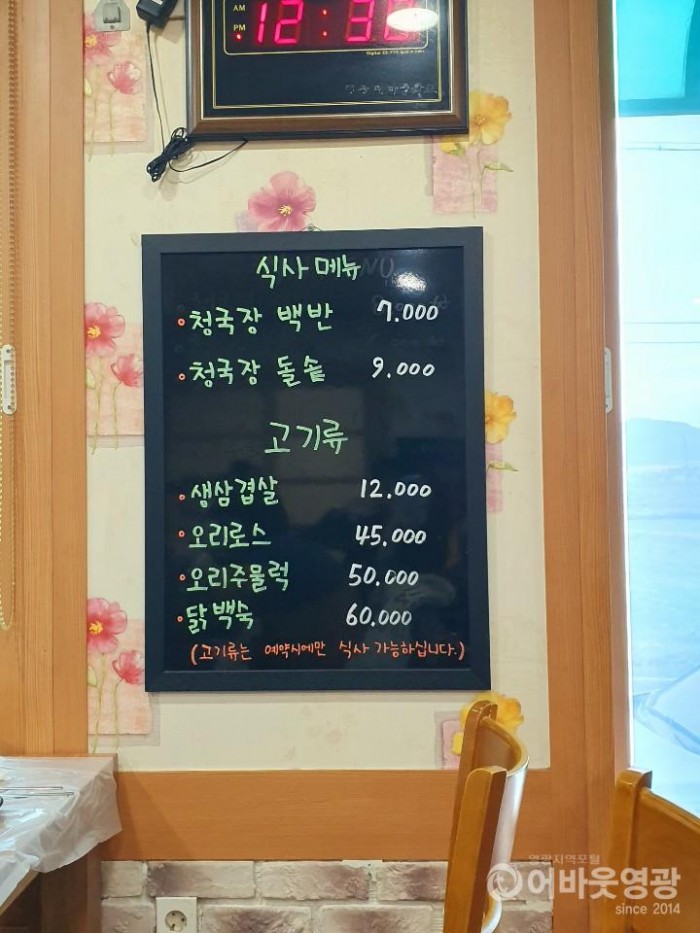 AM
PM
12:30
식사 메뉴
청국장 백반 7.000
청국장 돌솥 9.000
고기류
생삼겹살 12.000
오리로스 45.000
오리주물럭 50.000
닭백숙 60.000
(고기류는 예약시에만 식사 가능하십니다.)
영광지역포털
어바웃영광
since 2014